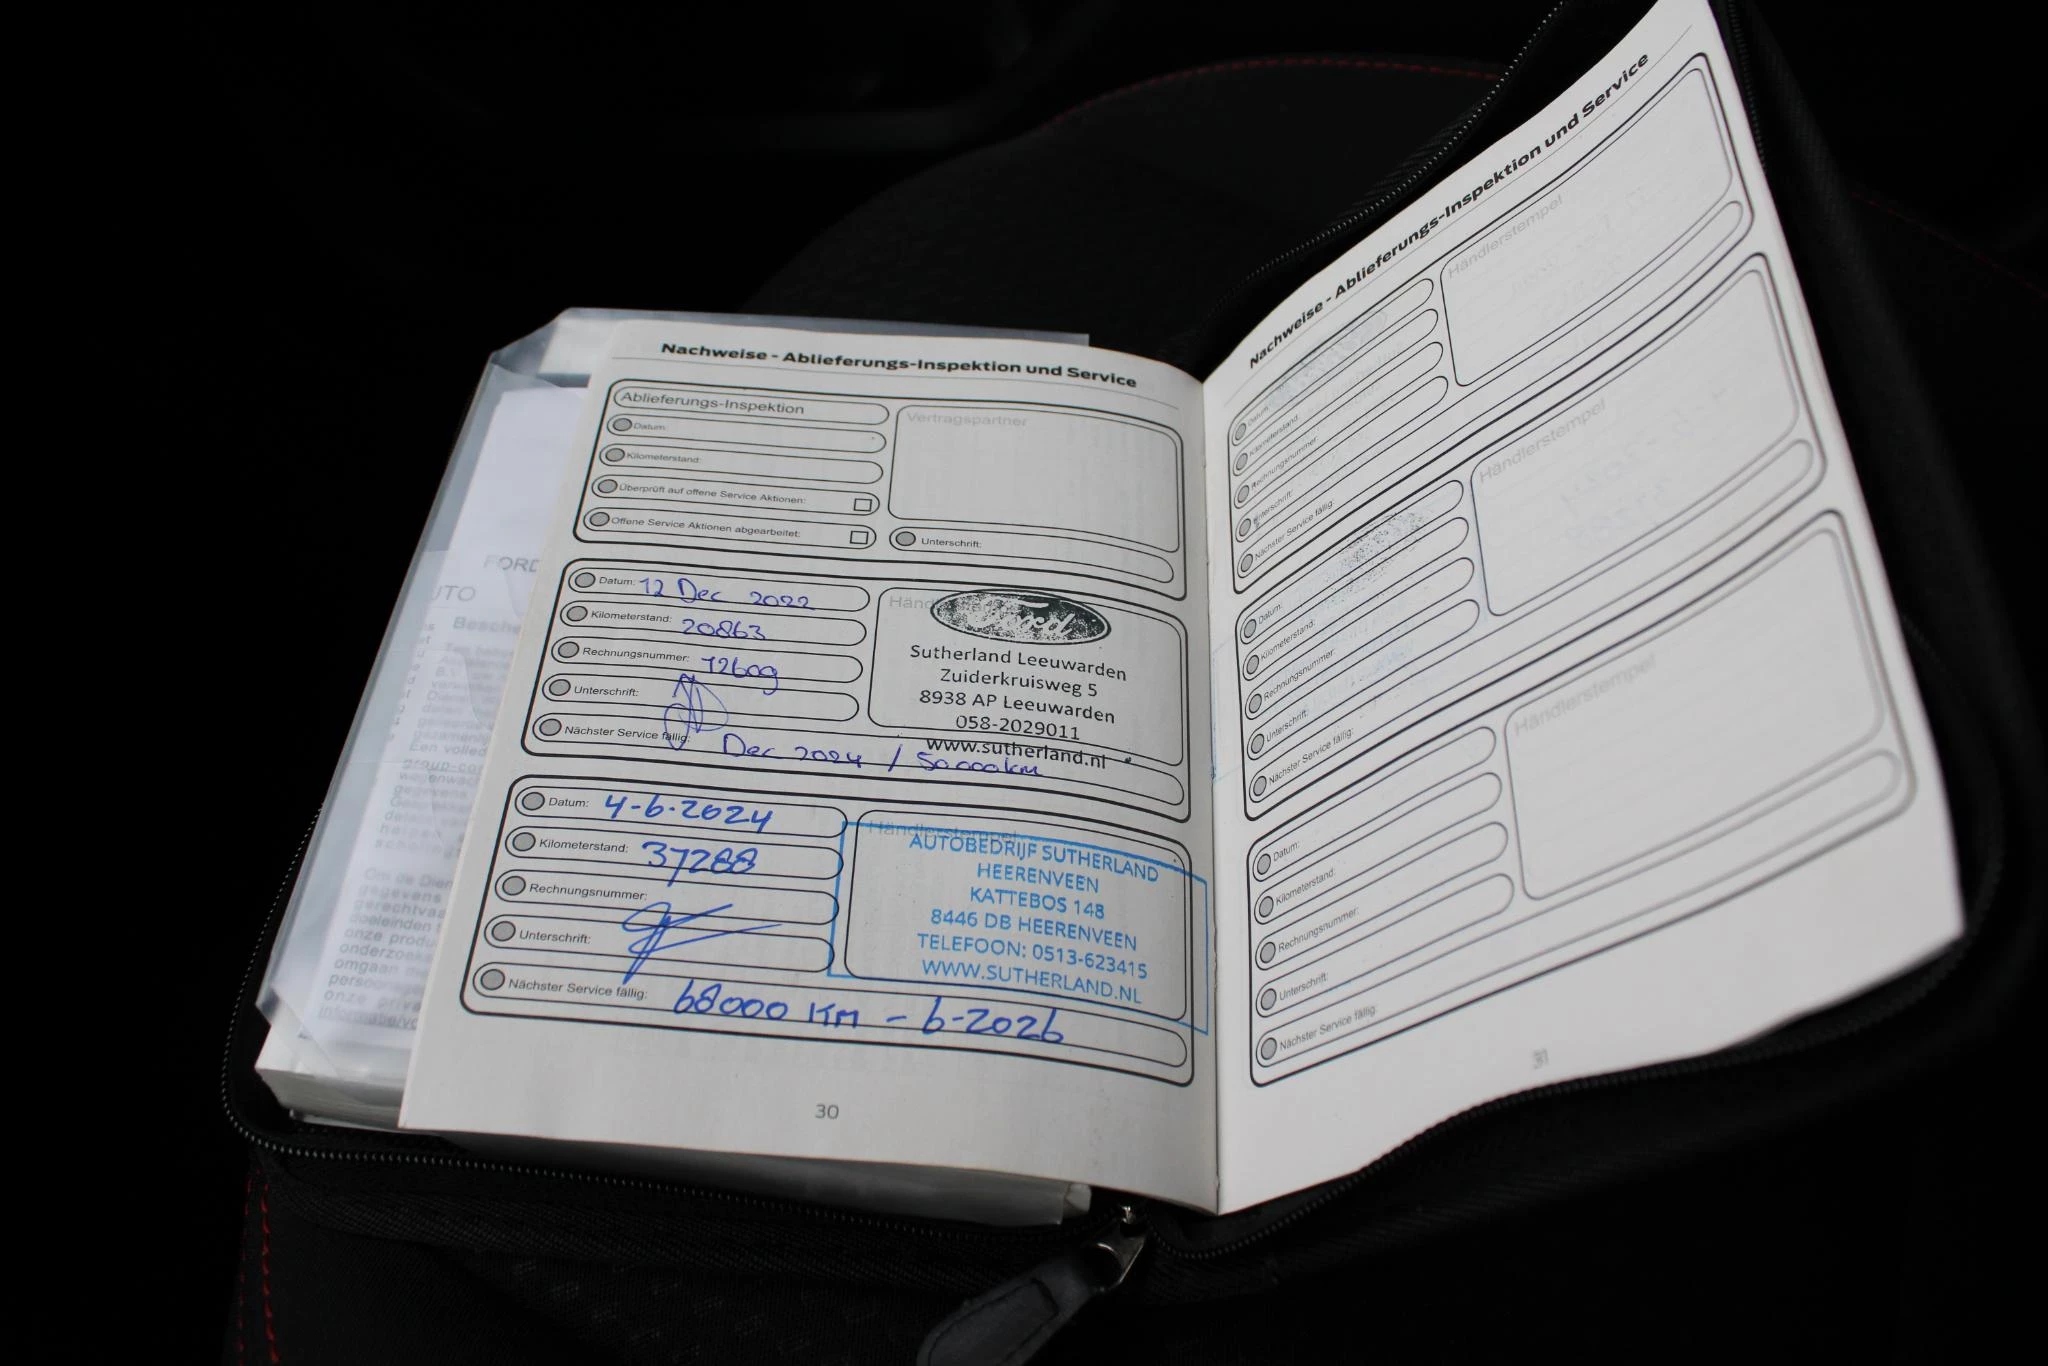 Nachweise - Ablieferungs-Inspektion und Service
Ablieferungs-Inspektion
Vertragspartner
Datum:
Kilometerstand:
Überprüft auf offene Service Aktionen:
Offene Service Aktionen abgearbeitet:
Unterschrift:
Datum: 12 Dec 2022
Kilometerstand: 20863
Rechnungsnummer: 12609
Unterschrift:
Nächster Service fällig: Dec 2024 / 50000km
Ford
Sutherland Leeuwarden
Zuiderkruisweg 5
8938 AP Leeuwarden
058-2029011
www.sutherland.nl
Datum: 4-6-2024
Kilometerstand: 37288
Rechnungsnummer:
Unterschrift:
Nächster Service fällig: 68000 KM - 6-2026
Händlerstempel
AUTOBEDRIJF SUTHERLAND
HEERENVEEN
KATTEBOS 148
8446 DB HEERENVEEN
TELEFOON: 0513-623415
WWW.SUTHERLAND.NL
30
Nachweise - Ablieferungs-Inspektion und Service
Datum:
Kilometerstand:
Rechnungsnummer:
Unterschrift:
Nächster Service fällig:
Händlerstempel
Datum:
Kilometerstand:
Rechnungsnummer:
Unterschrift:
Nächster Service fällig:
Händlerstempel
Datum:
Kilometerstand:
Rechnungsnummer:
Unterschrift:
Nächster Service fällig:
Händlerstempel
31
FORD